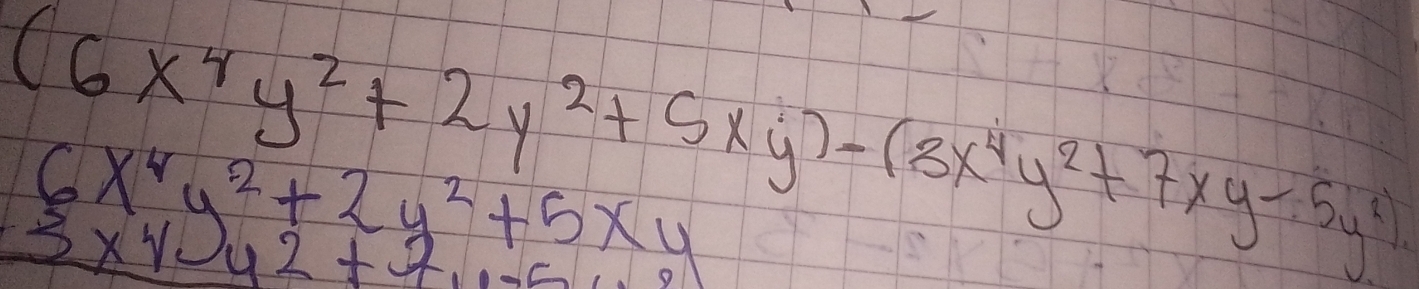 (6x⁴y²+2y²+5xy)-(3x⁴y²+7xy-5y²)
6x⁴y²+2y²+5xy
3x⁴y²+7